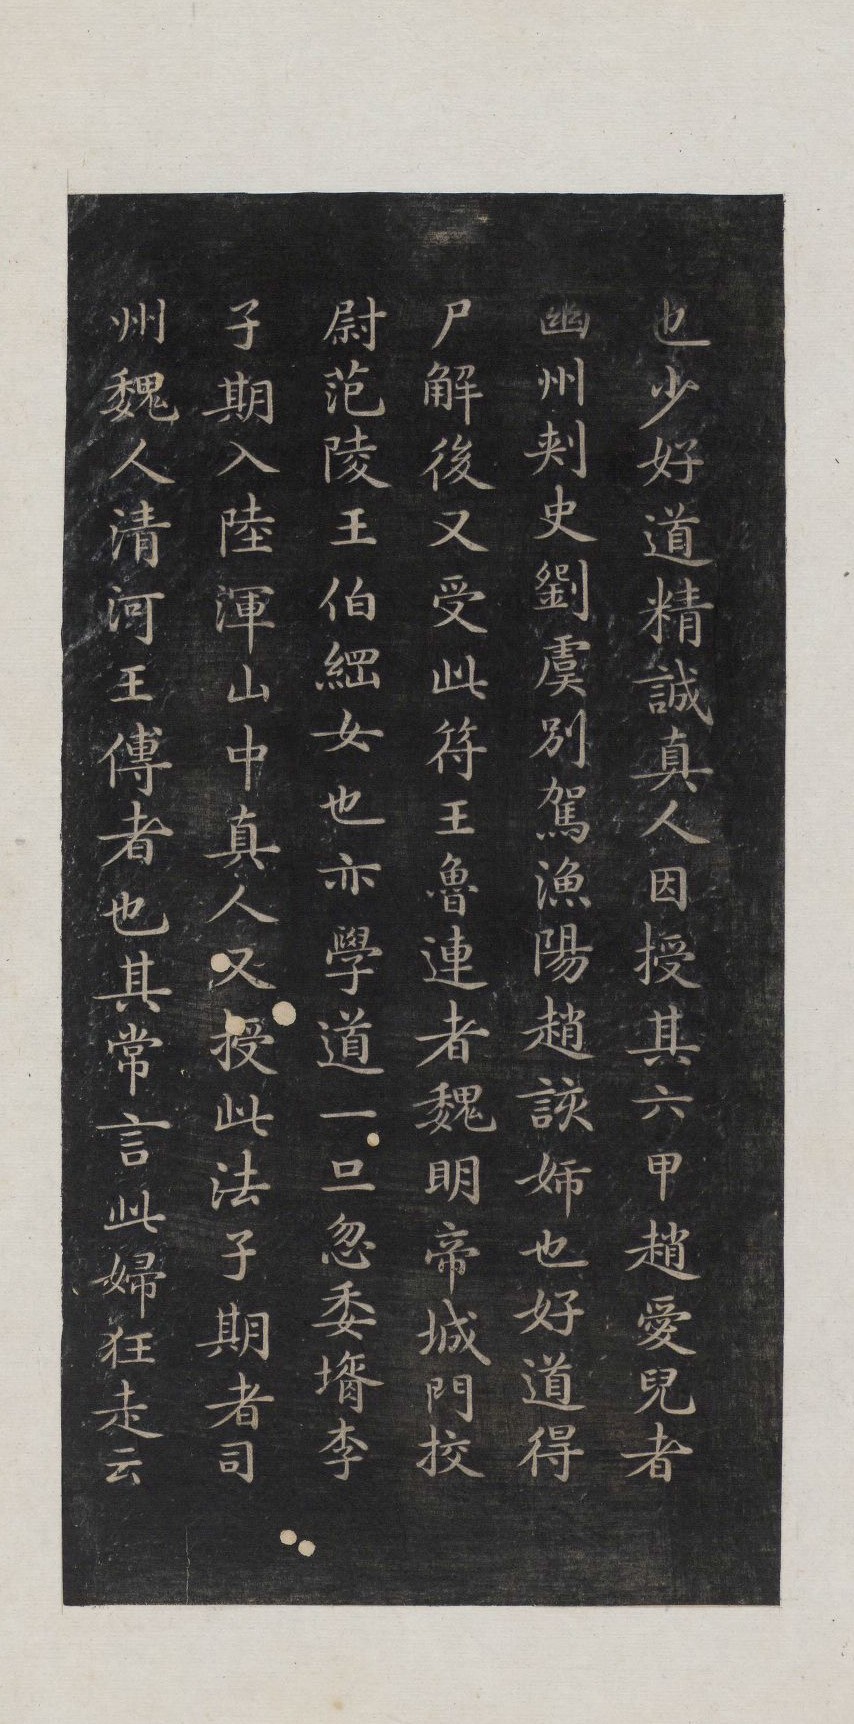 也少好道精誠真人因授其六甲趙愛兒者
幽州刾史劉虞別駕漁陽趙該姉也好道得
尸解後又受此符王魯連者魏明帝城門挍
尉范陵王伯綱女也亦學道一旦忽委壻李
子期入陸渾山中真人又授此法子期者司
州魏人清河王傅者也其常言此婦狂走云